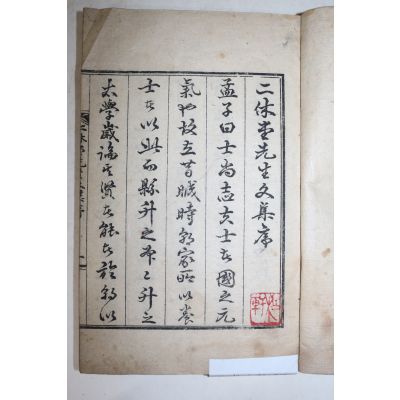 二休堂先生文集序
孟子曰士尚志夫士者國之元
氣也故在昔盛時朝家所以養
士者以此而縣升之州〻升之
太學歲論其賢者能者於朝以